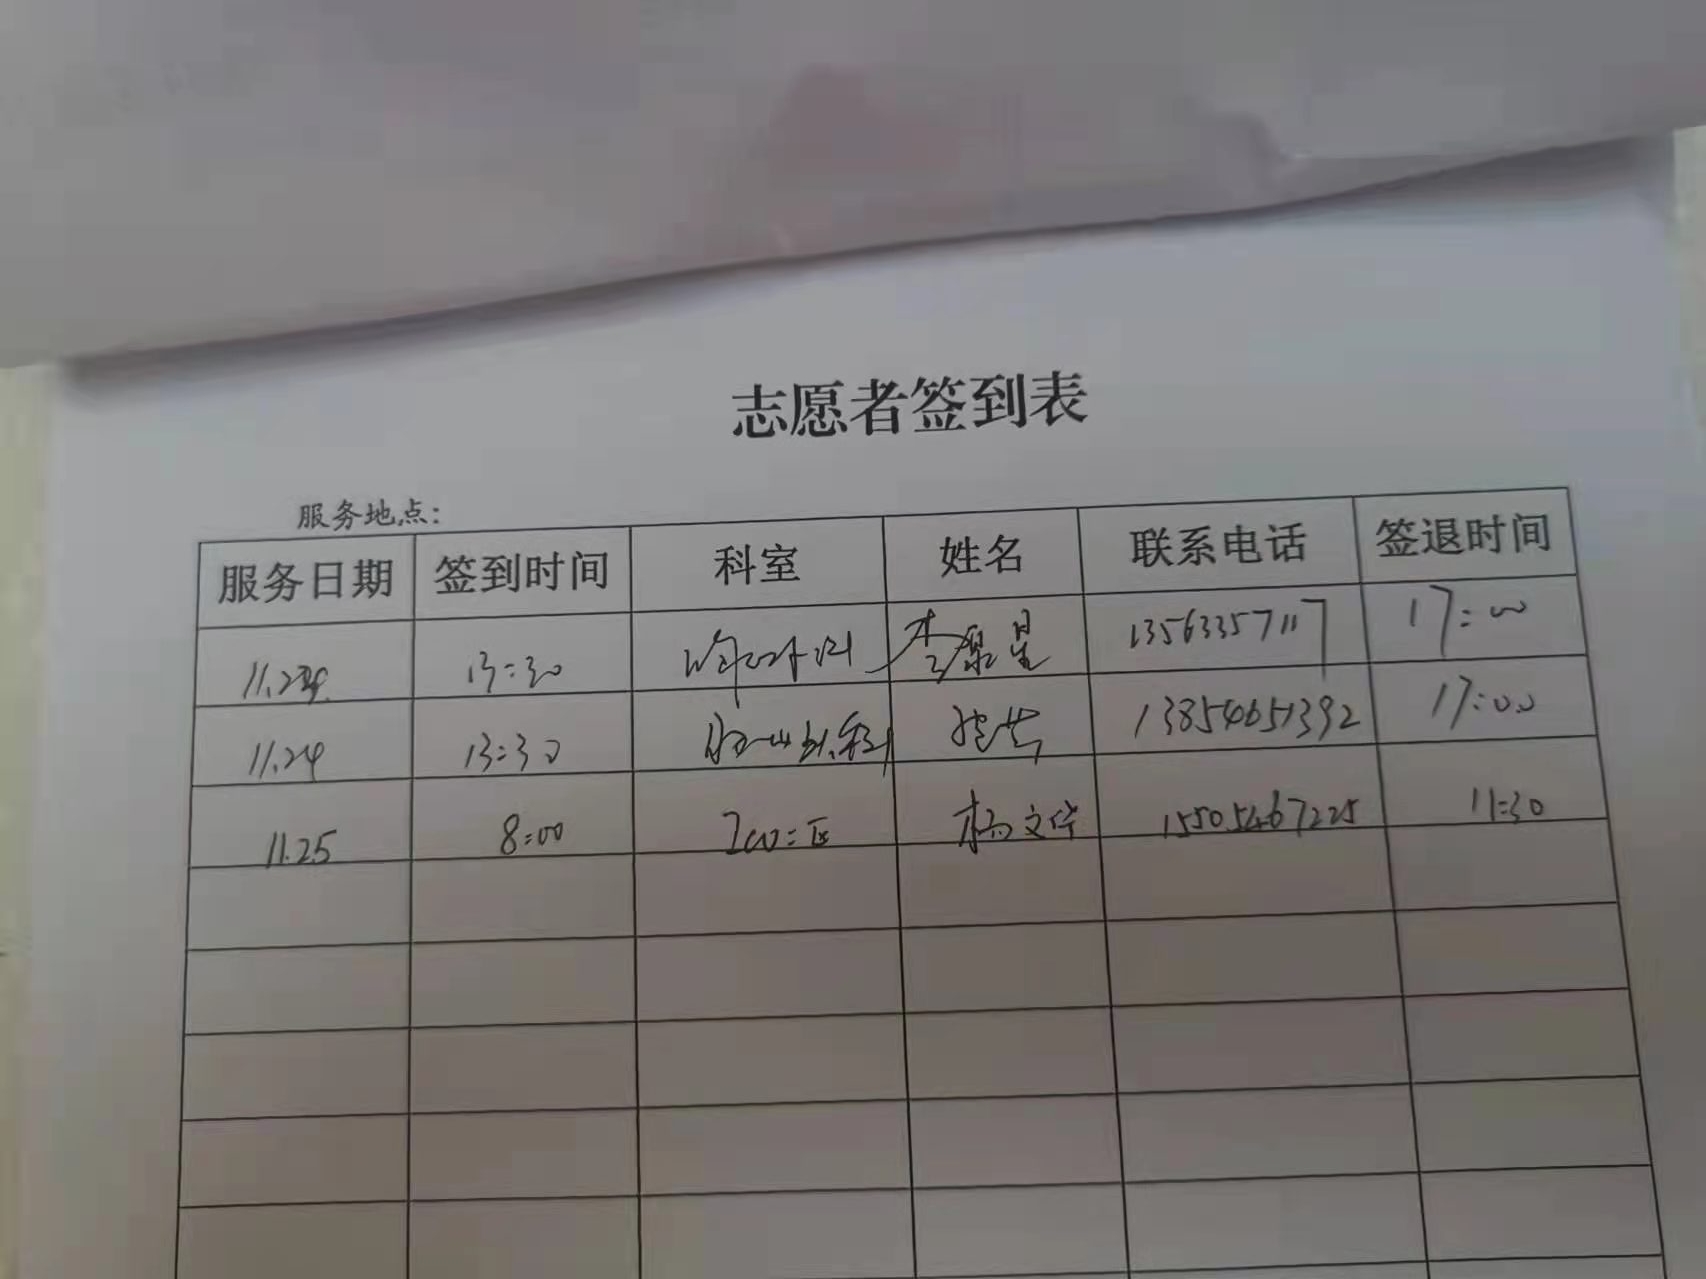 志愿者签到表
服务地点：
服务日期 签到时间 科室 姓名 联系电话 签退时间
11.24 13:30 13563357117 17:00
11.24 13:30 13854651392 17:00
11.25 8:00 ICU二区 杨文华 15505467225 11:30